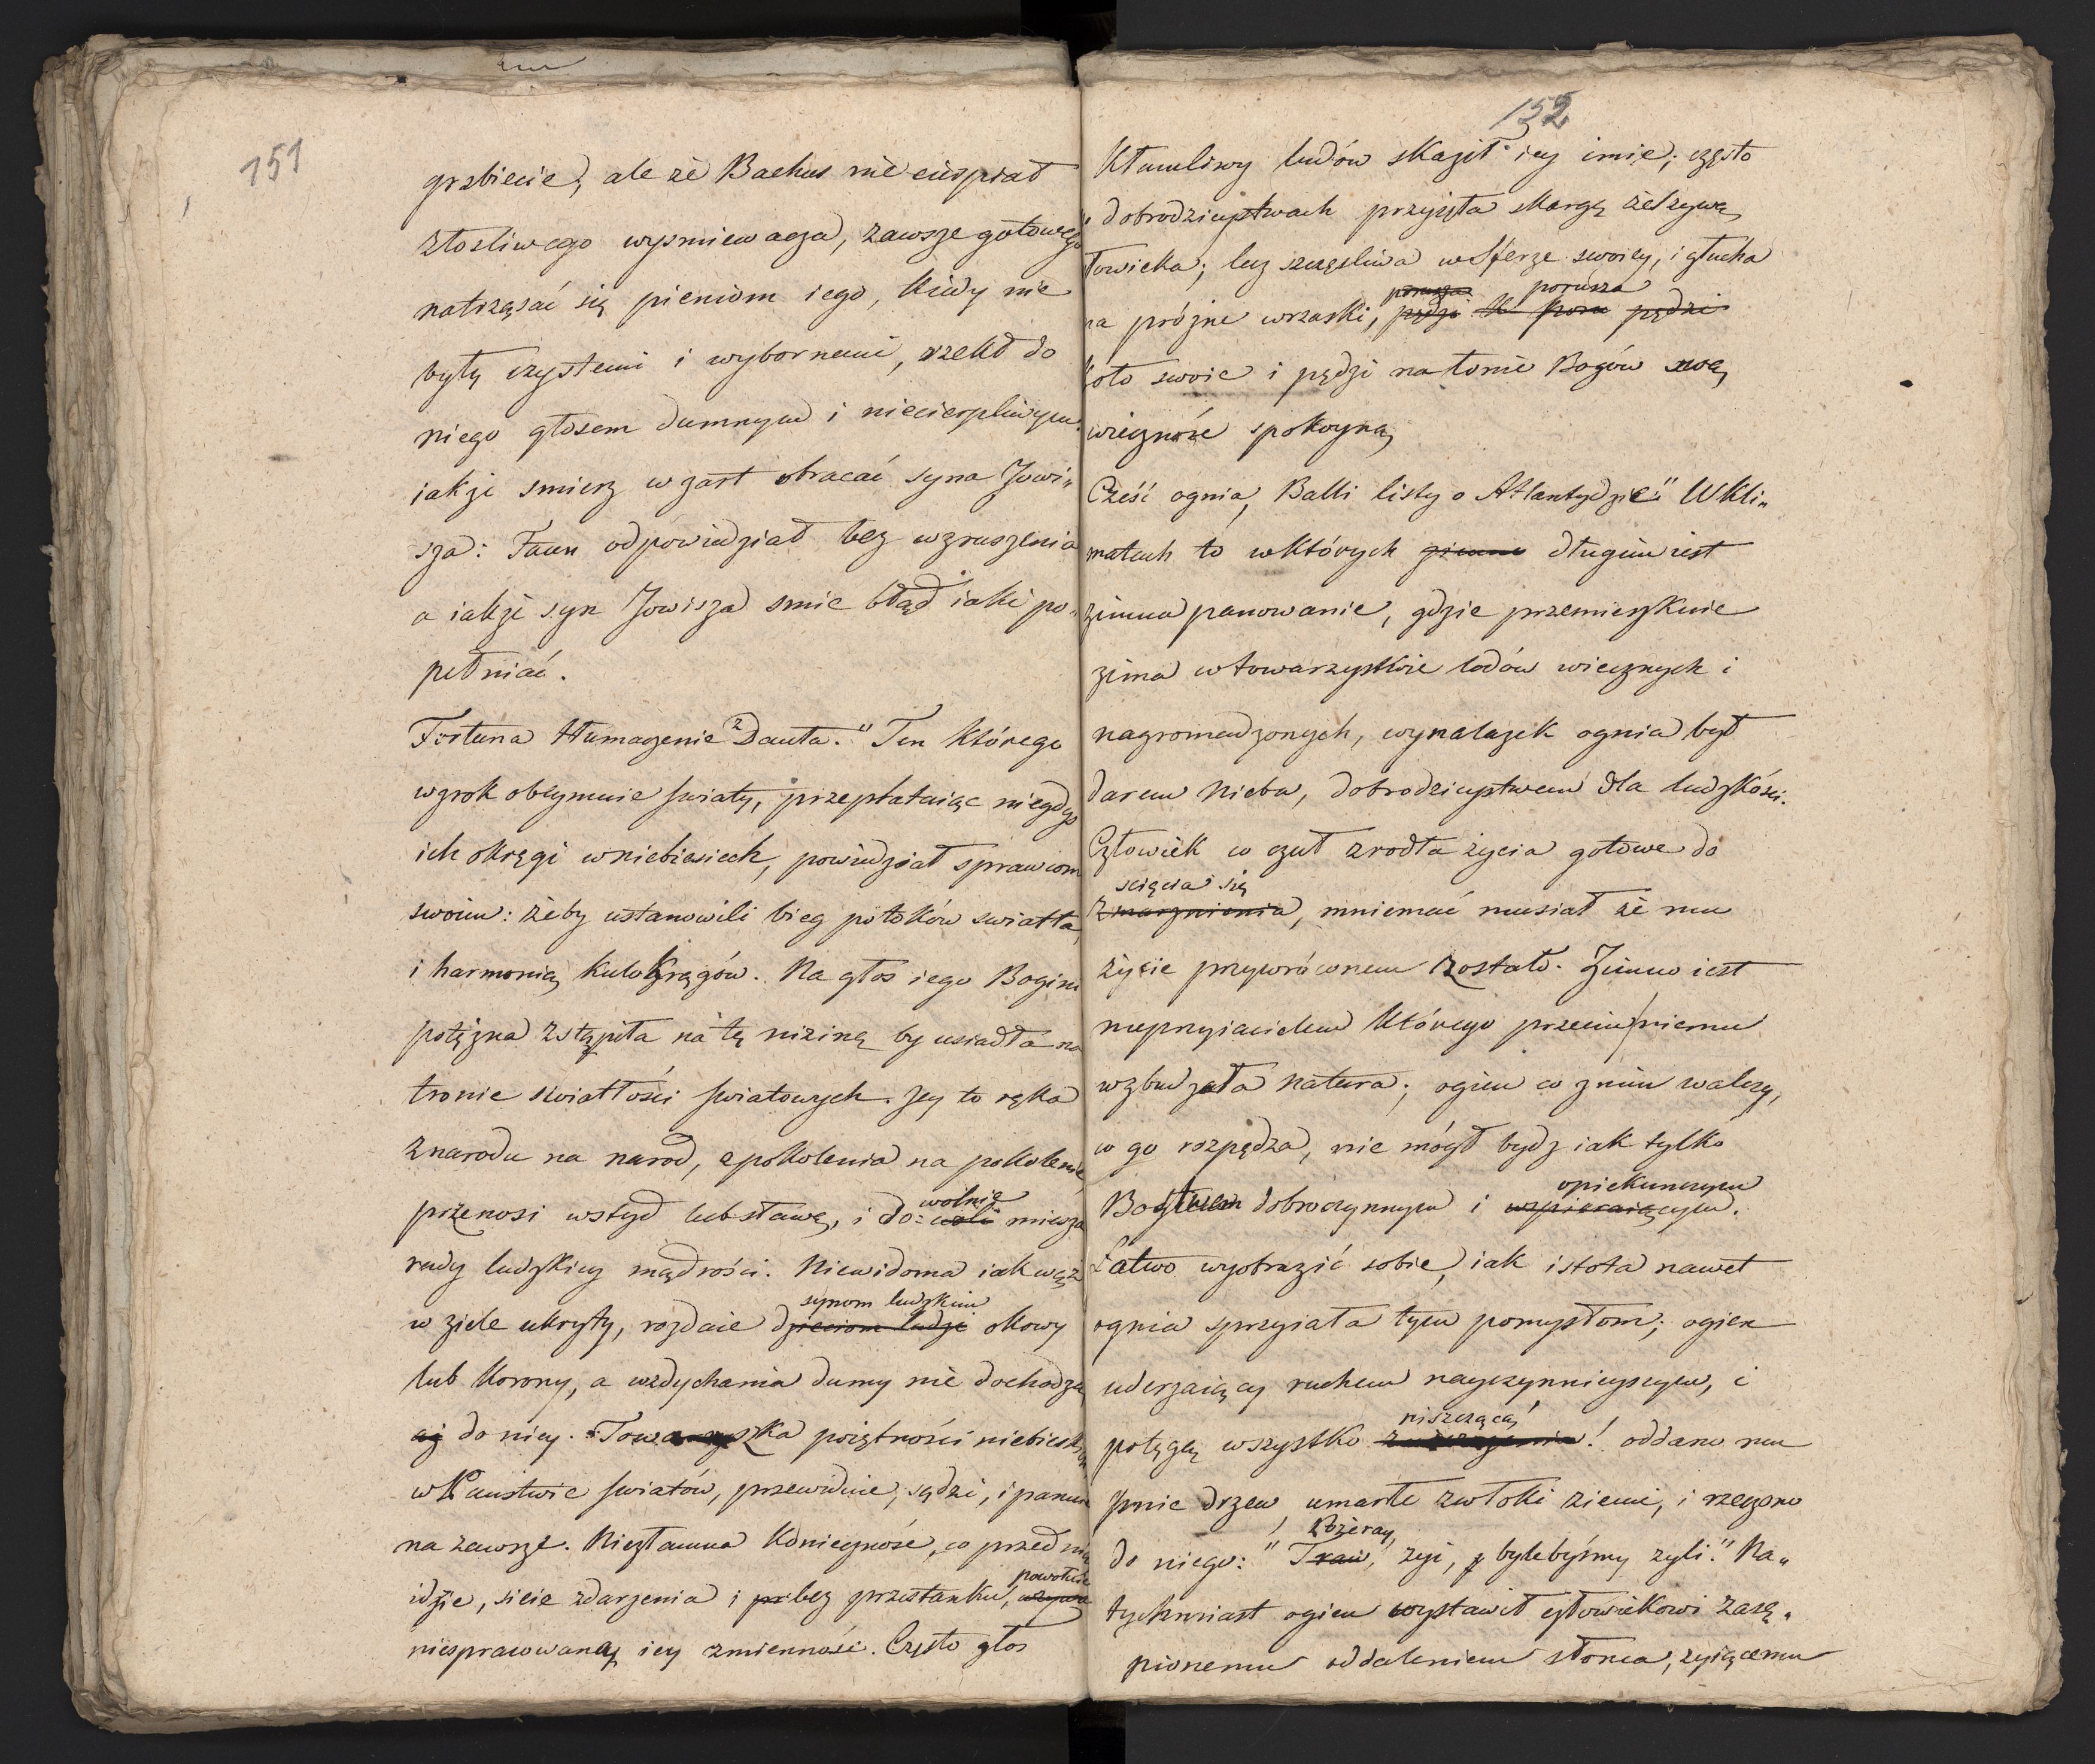 151
grzbiecie, ale że Bachus nie cierpiał
złosliwego wysmiewacza, zawsze gotowego
natrząsać się pieniom iego, kiedy nie
były czystemi i wybornemi, rzekł do
niego głosem dumnym i niecierpliwym.
iakże smiesz w żart obracać syna Jowi„
sza: Faun odpowiedział bez wzruszenia
a iakże syn Jowisza smie błąd iaki po„
pełniać.
Fortuna tłumaczenie z Danta. " Ten którego
wzrok obeymuie swiaty, przeplataiąc niegdyś
ich okręgi w niebiesiech, powiedział sprawcom
swoim: żeby ustanowili bieg potoków swiatła,
i harmonią kulokręgów. Na głos iego Bogini
potężna zstąpiła na tę nizinę by usiadła na
tronie swiatłości swiatowych. Jey to ręka
z narodu na narod, z pokolenia na pokolenie
wolnie
przenosi wstyd lub sławę, i do: woli miesza
rady ludzkiey mądrości. Niewidoma iak wąż
synom ludzkim
w ziele ukryty, rozdaie dzieciom ludzi okowy
lub korony, a wzdychania dumy nie dochodzą
aż do niey. Towarzyszka poiętności niebieskich
w Państwie swiatów, przewiduie, sądzi, i panuie
na zawsze. Niezłamna konieczność, co przed nią
powołuie
idzie, sieie zdarzenia i bez przestanku, wzywa
niespracowaną iey zmienność. Często głos
152
Kłamliwy ludów skaził iey imie; często
o dobrodzieystwach przyięta skargę żelżywą
łowieka; lecz szczęsliwa w sferze swoiey, i głucha
porusza porusza
na próżne wrzaski, pędzi pędzi
koło swoie i pędzi na łonie Bogów swą
wieczność spokoyną
Cześć ognia, Balli listy o Atlantydzie." W kli„
matach to w których zimno długim iest
zimna panowanie, gdzie przemieszkuie
zima w towarzystwie lodów wiecznych i
nagromadzonych, wynalazek ognia był
darem Nieba, dobrodzieystwem dla ludzkości.
Człowiek co czuł zrodła życia gotowe do
scięcia się
zmarznienia, mniemać musiał że mu
życie przywróconem zostało. Zimno iest
nieprzyiacielem którego przeciw niemu
wzbudzała natura; ogień co z nim walczy,
co go rozpędza, nie mógł bydz iak tylko
opiekunczym
Bostwem dobroczynnym i wspieraiącym.
Łatwo wyobrazić sobie, iak istota nawet
ognia sprzyiała tym pomysłom; ogień
uderzaiący ruchem nayczynnieyszym, i
niszczącą
potęgą wszystko ! oddano mu
pnie drzew, umarłe zwłoki ziemi, i rzeczono
Pożeray
do niego: " Traw, żyi, bylebyśmy żyli." Na„
tychmiast ogień wystawił człowiekowi zasę„
pionemu oddaleniem słońca, żyiącemu